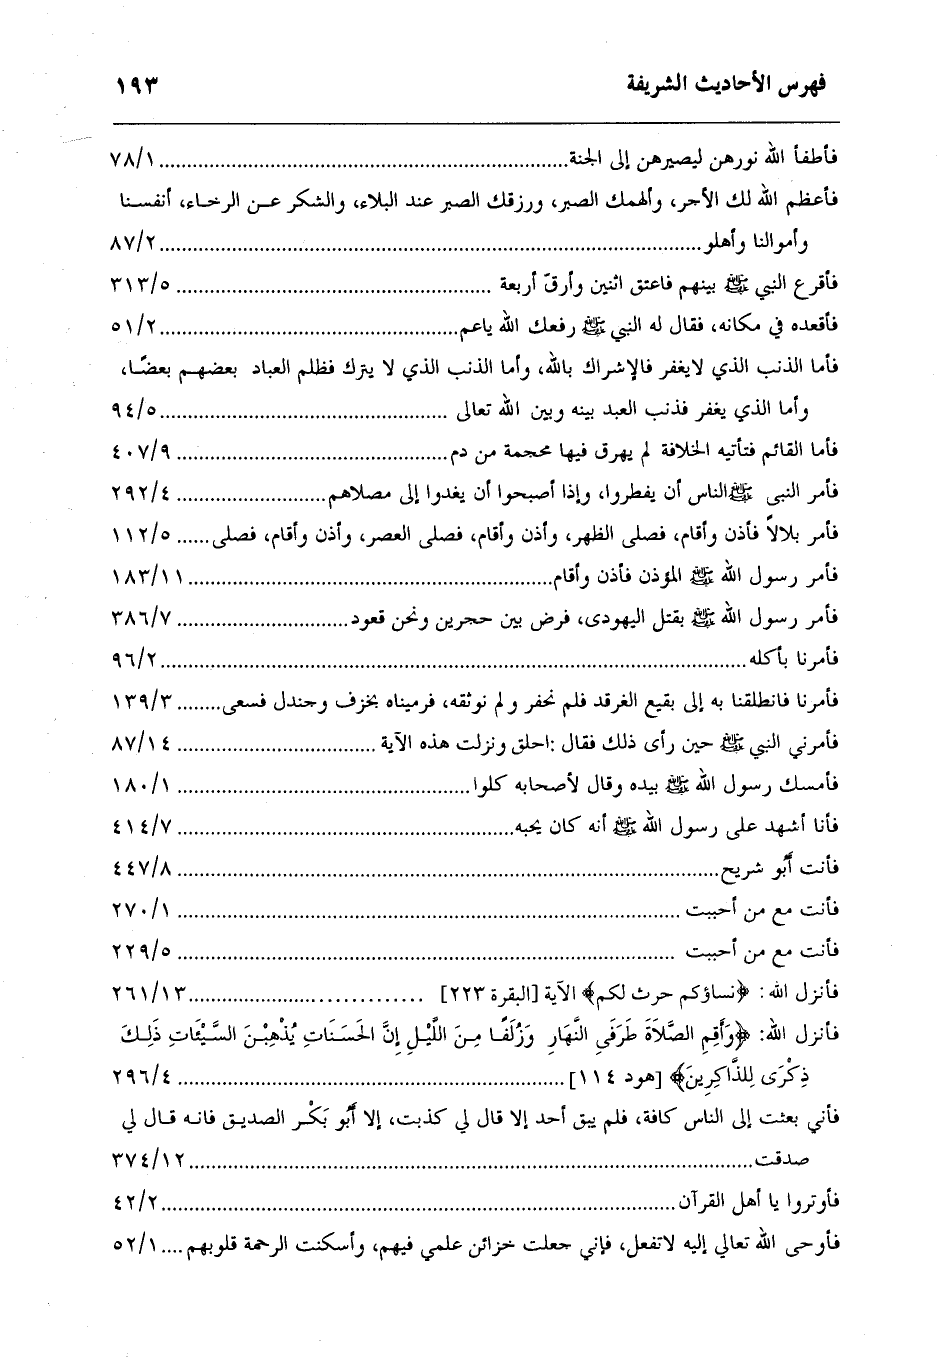 فهرس الأحاديث الشريفة ١٩٣
فأطفأ الله نورهن ليصيرهن إلى الجنة ........ ٧٨/١
فأعظم الله لك الأجر، وألهمك الصبر، ورزقك الصبر عند البلاء، والشكر عن الرخاء، أنفسنا
وأموالنا وأهلو ........ ٨٧/٢
فأقرع النبي ﷺ بينهم فاعتق اثنين وأرقّ أربعة ........ ٣١٣/٥
فأقعده في مكانه، فقال له النبي ﷺ رفعك الله ياعم ........ ٥١/٢
فأما الذنب الذي لايغفر فالإشراك بالله، وأما الذنب الذي لا يترك فظلم العباد بعضهم بعضًا،
وأما الذي يغفر فذنب العبد بينه وبين الله تعالى ........ ٩٤/٥
فأما القائم فتأتيه الخلافة لم يهرق فيها محجمة من دم ........ ٤٠٧/٩
فأمر النبي ﷺ الناس أن يفطروا، وإذا أصبحوا أن يغدوا إلى مصلاهم ........ ٢٩٢/٤
فأمر بلالاً فأذن وأقام، فصلى الظهر، وأذن وأقام، فصلى العصر، وأذن وأقام، فصلى ...... ١١٢/٥
فأمر رسول الله ﷺ المؤذن فأذن وأقام ........ ١٨٣/١١
فأمر رسول الله ﷺ بقتل اليهودى، فرض بين حجرين ونحن قعود ........ ٣٨٦/٧
فأمرنا بأكله ........ ٩٦/٢
فأمرنا فانطلقنا به إلى بقيع الغرقد فلم نحفر ولم نوثقه، فرميناه بخزف وجندل فسعى ........ ١٣٩/٣
فأمرني النبي ﷺ حين رأى ذلك فقال :احلق ونزلت هذه الآية ........ ٨٧/١٤
فأمسك رسول الله ﷺ بيده وقال لأصحابه كلوا ........ ١٨٠/١
فأنا أشهد على رسول الله ﷺ أنه كان يحبه ........ ٤١٤/٧
فأنت أَبُو شريح ........ ٤٤٧/٨
فأنت مع من أحببت ........ ٢٧٠/١
فأنت مع من أحببت ........ ٢٢٩/٥
فأنزل الله : ﴿نساؤكم حرث لكم﴾ الآية [البقرة ٢٢٣] ........ ٢٦١/١٣
فأنزل الله: ﴿وَأَقِمِ الصَّلَاةَ طَرَفَيِ النَّهَارِ وَزُلَفًا مِنَ اللَّيْلِ إِنَّ الحَسَنَاتِ يُذْهِبْنَ السَّيِّئَاتِ ذَلِكَ
ذِكْرَى لِلذَّاكِرِينَ﴾ [هود ١١٤] ........ ٢٩٦/٤
فأني بعثت إلى الناس كافة، فلم يبق أحد إلا قال لي كذبت، إلا أَبُو بَكْر الصديق فانه قال لي
صدقت ........ ٣٧٤/١٢
فأوتروا يا أهل القرآن ........ ٤٢/٢
فأوحى الله تعالي إليه لاتفعل، فإني جعلت خزائن علمي فيهم، وأسكنت الرحمة قلوبهم .... ٥٢/١